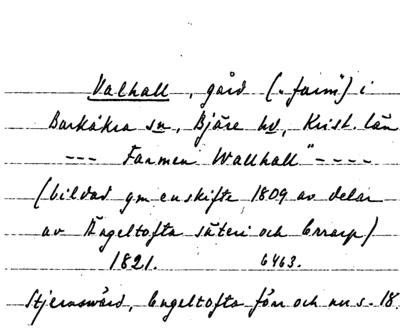 Valhall, gård („farm") i
Barkåkra sn, Bjäre hd, Krist. län
--- Farmen Wallhall" ----
(bildad gm enskifte 1809 av delar
av Ängeltofta säteri och Errarp)
1821. 6463.
Stjernswärd, Engeltofta förr och nu s. 18.